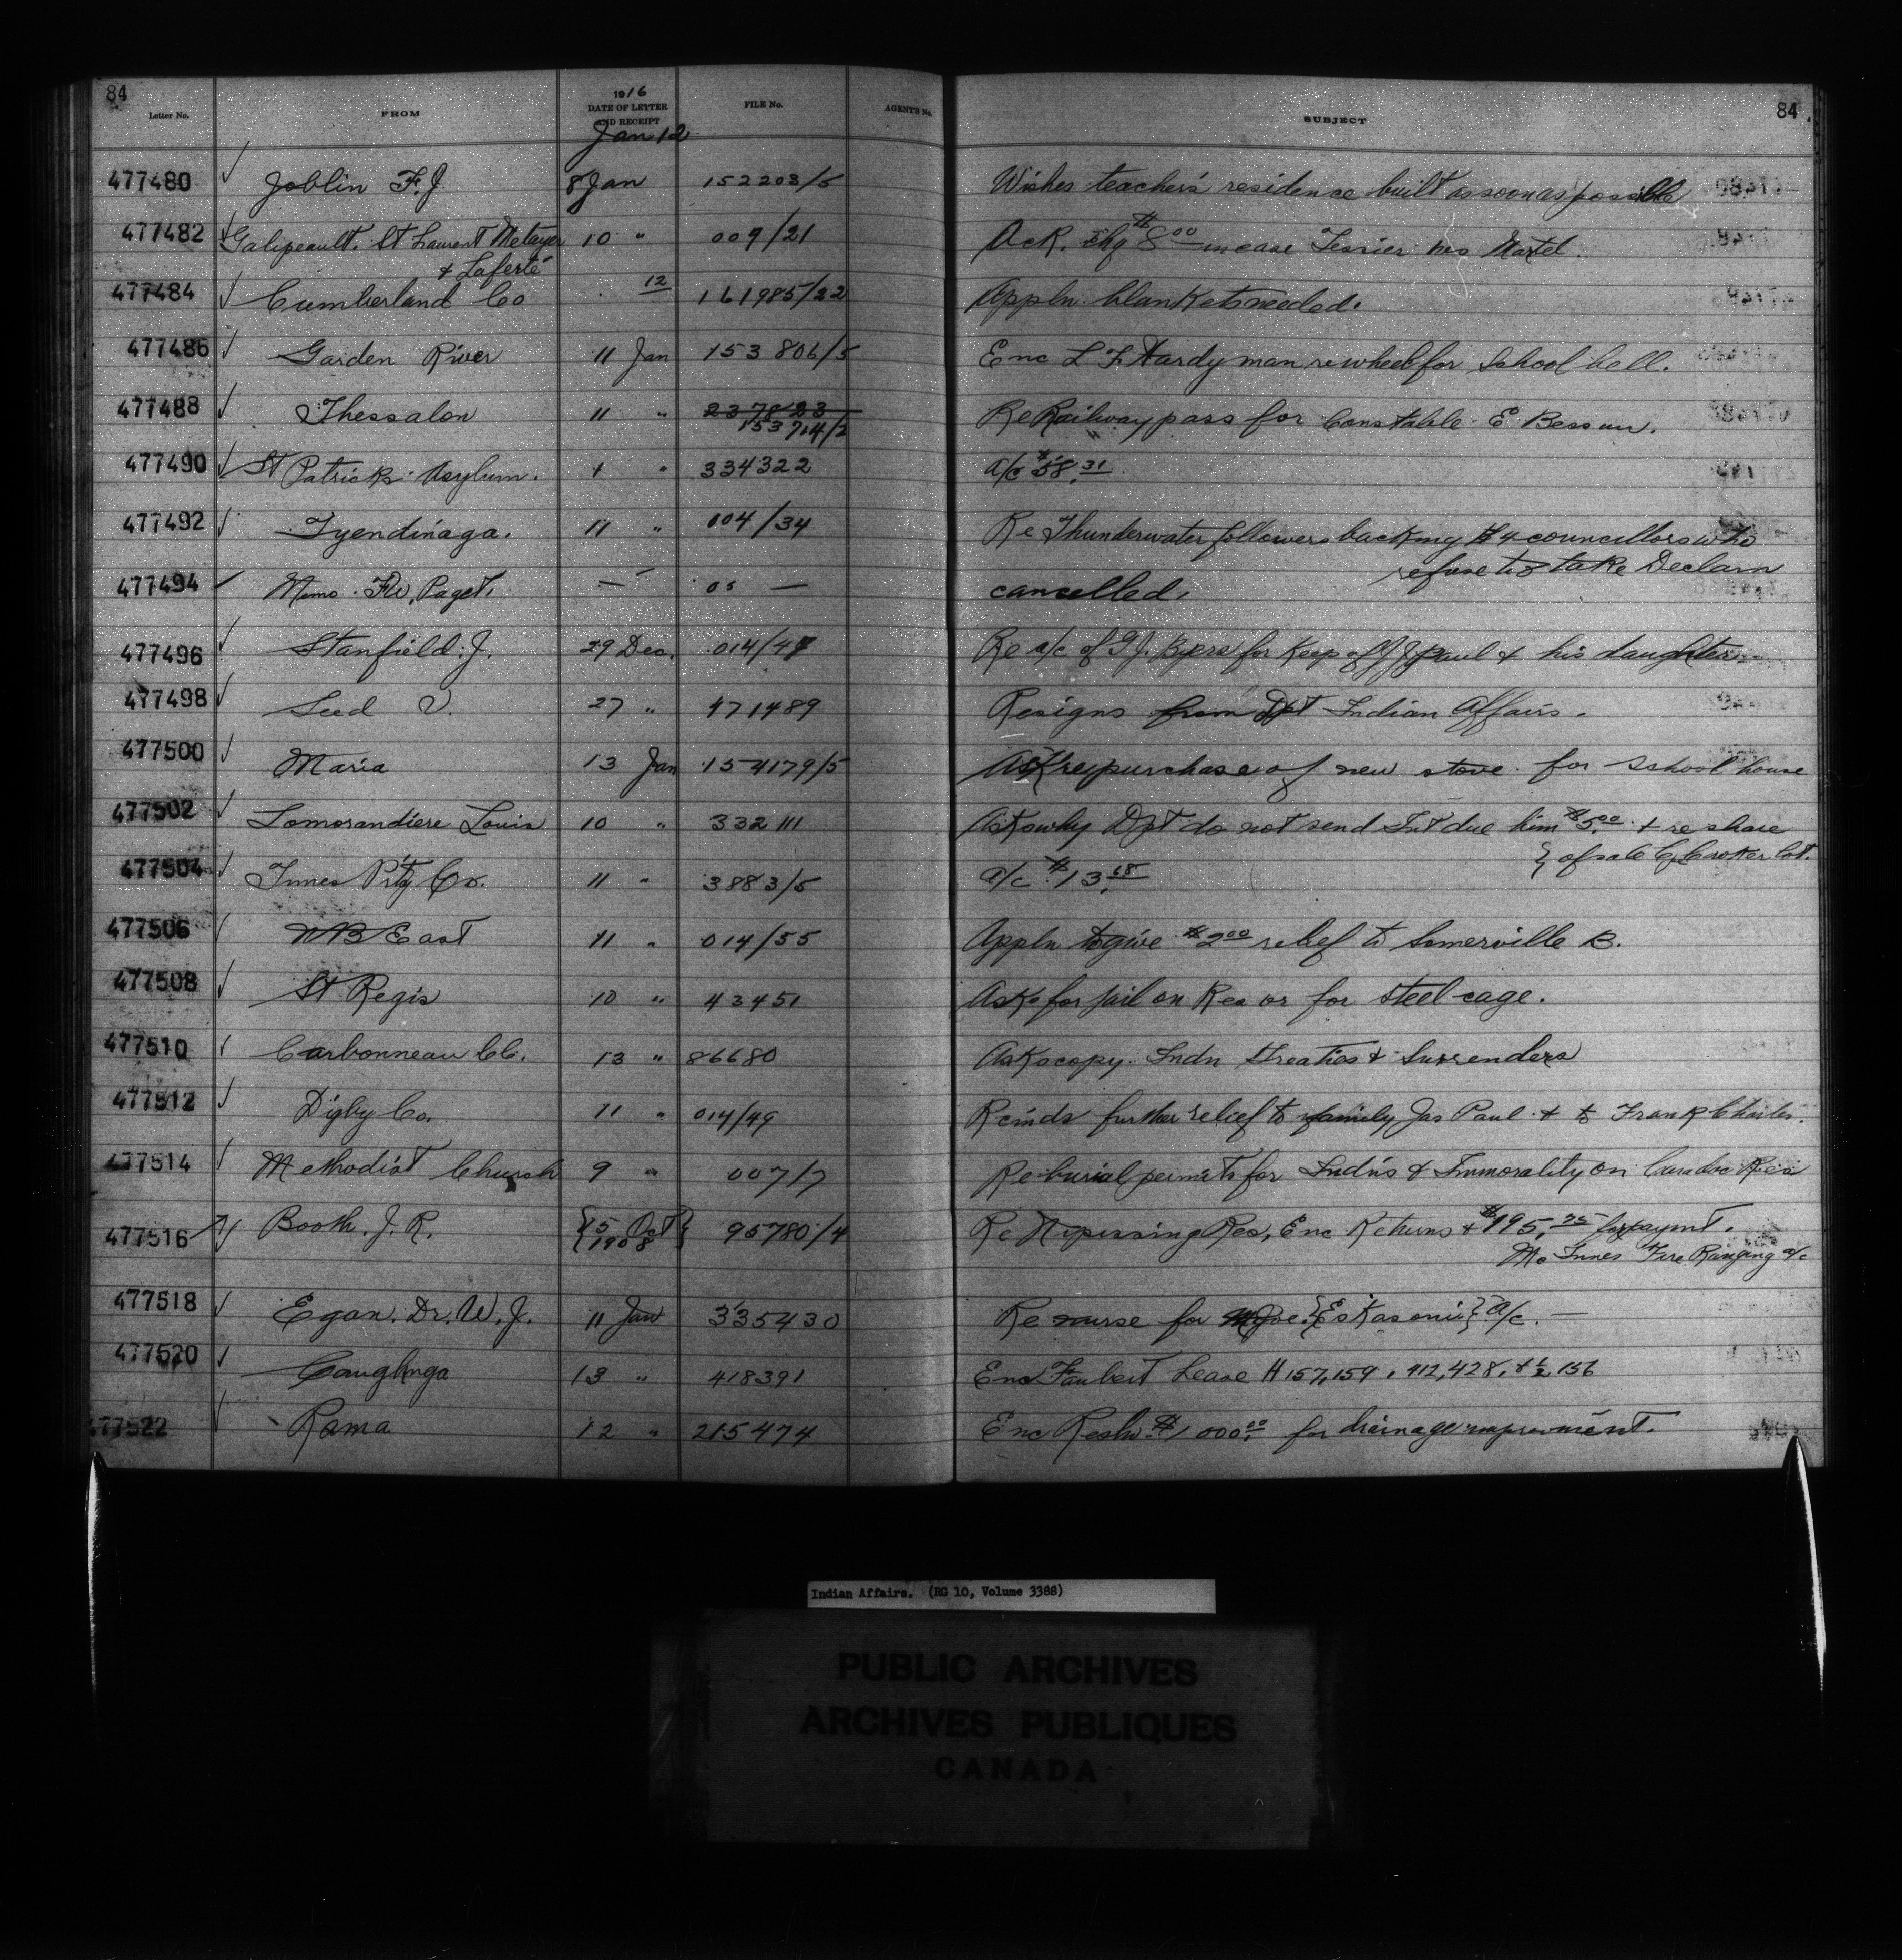 84
84
Letter No.
FROM
1916
DATE OF LETTER
AND RECEIPT
FILE No.
AGENT'S No.
SUBJECT
Jan 12
477480 Joblin F. J. 8 Jan 152203/5 Wishes teacher's residence built as soon as possible
477482 Galipeault. St Laurent Metayer 10 " 009/21 Ack. chq $8.00 in case Tessier Martel.
& Laferté
477484 Cumberland Co 12 161985/22 Appln blankets needed.
477486 Garden River 11 Jan 153806/5 Enc L F Hardyman re wheel for School bell.
477488 Thessalon 11 " 237823 Re Railway pass for Constable E
153714/2
477490 St Patricks Asylum. " 334322 a/c $58.31
477492 Tyendinaga. 11 " 104/34 Re Thunderwater followers backing 4 councillors who
refuse to take Declarn
477494 Memo. F W, Paget. — 03 — cancelled.
477496 Stanfield. J. 29 Dec. 014/47 Re a/c of G J. Byers for Keep of J Paul & his daughter
477498 Seed V. 27 " 471489 Resigns from Dpt Indian Affairs.
477500 Maria 13 Jan 154179/5 Ask re purchase of new stove for School house
477502 Lamorandiere Louis 10 " 332111 Asks why Dpt do not send Int due him $5.00 & re share
} of sale lot.
477504 Innes Prtg Co. 11 " 3883/5 a/c $13.68
477506 NB East 11 " 014/55 Appln to give $2.00 relief to Somerville B.
477508 St Regis 10 " 43451 Asks for jail on Res or for steel cage.
477510 Carbonneau CC. 13 " 86680 Asks copy Indn treaties & Surrenders
477512 Digby Co. 11 " 014/49 Rcmds further relief to family Jas Paul & to Frank Charles.
477514 Methodist Church 9 " 007/7 Re burial permits for Indns & Immorality on Caradoc Res
477516 Booth. J. R. { 15 Oct } 95780/4 Re Nipissing Res, Enc Returns & $195.75 for paymt.
{ 1908 Mo Innes Fire Ranging a/c
477518 Egan. Dr. W. J. 11 Jan 335430 Re nurse for Joe {Eskasoni} a/c. —
477520 Caughnga 13 " 418391 Enc Faubert Lease H 157,159, 412,428, & ½ 156
477522 Rama 12 " 215474 Enc Resln $1000.00 for drainage improvement.
Indian Affairs. (RG 10, Volume 3388)
PUBLIC ARCHIVES
ARCHIVES PUBLIQUES
CANADA